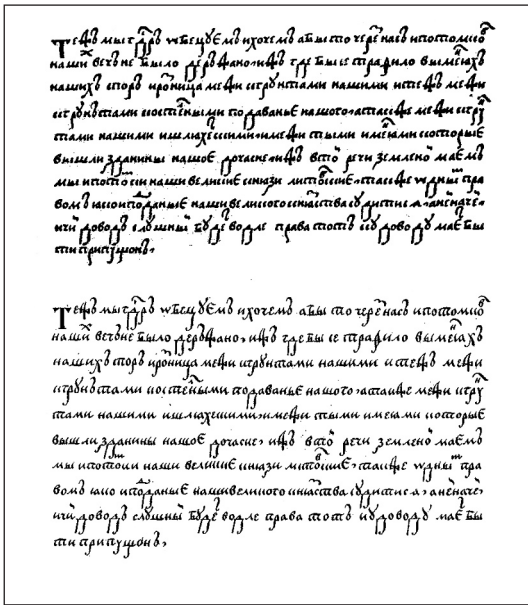 Тежъ мы гдръ ѡбецуемъ и хочемъ абы то через насъ и потомков
наши вечъне было держано, ижъ где бы се трафило в ыменах
нашихъ споръ границы межи кгрунтами нашими и тежъ межи
кгрунътами костелными подаванье нашого, а также межи кгрун
тами нашими и шляхецкими, межи тыми именями которые
вышли з данины нашое дочасне, ижъ в той речи земленой маемъ
мы и потомки наши великие князи литовские, также ѡдным пра
вомъ яко и подданые нашы великого князства судитися,
ичий доводъ слушный будет водле права тотъ к доводу маеть бы
ти припущонъ.
Тежъ мы гдръ ѡбецуемъ и хочемъ абы то через насъ и потомков
наши вечъне было держано, ижъ где бы се трафило в ыменах
нашихъ споръ границы межи кгрунтами нашими и тежъ межи
кгрунътами костелными подаванье нашого, а также межи кгрун
тами нашими и шляхецкими, межи тыми именями которые
вышли з данины нашое дочасне, ижъ в той речи земленой маемъ
мы и потомки наши великие князи литовские, также ѡдным пра
вомъ яко и подданые наши великого князства судитися,
ичий доводъ слушный будет водле права тотъ к доводу маеть бы
ти припущонъ,